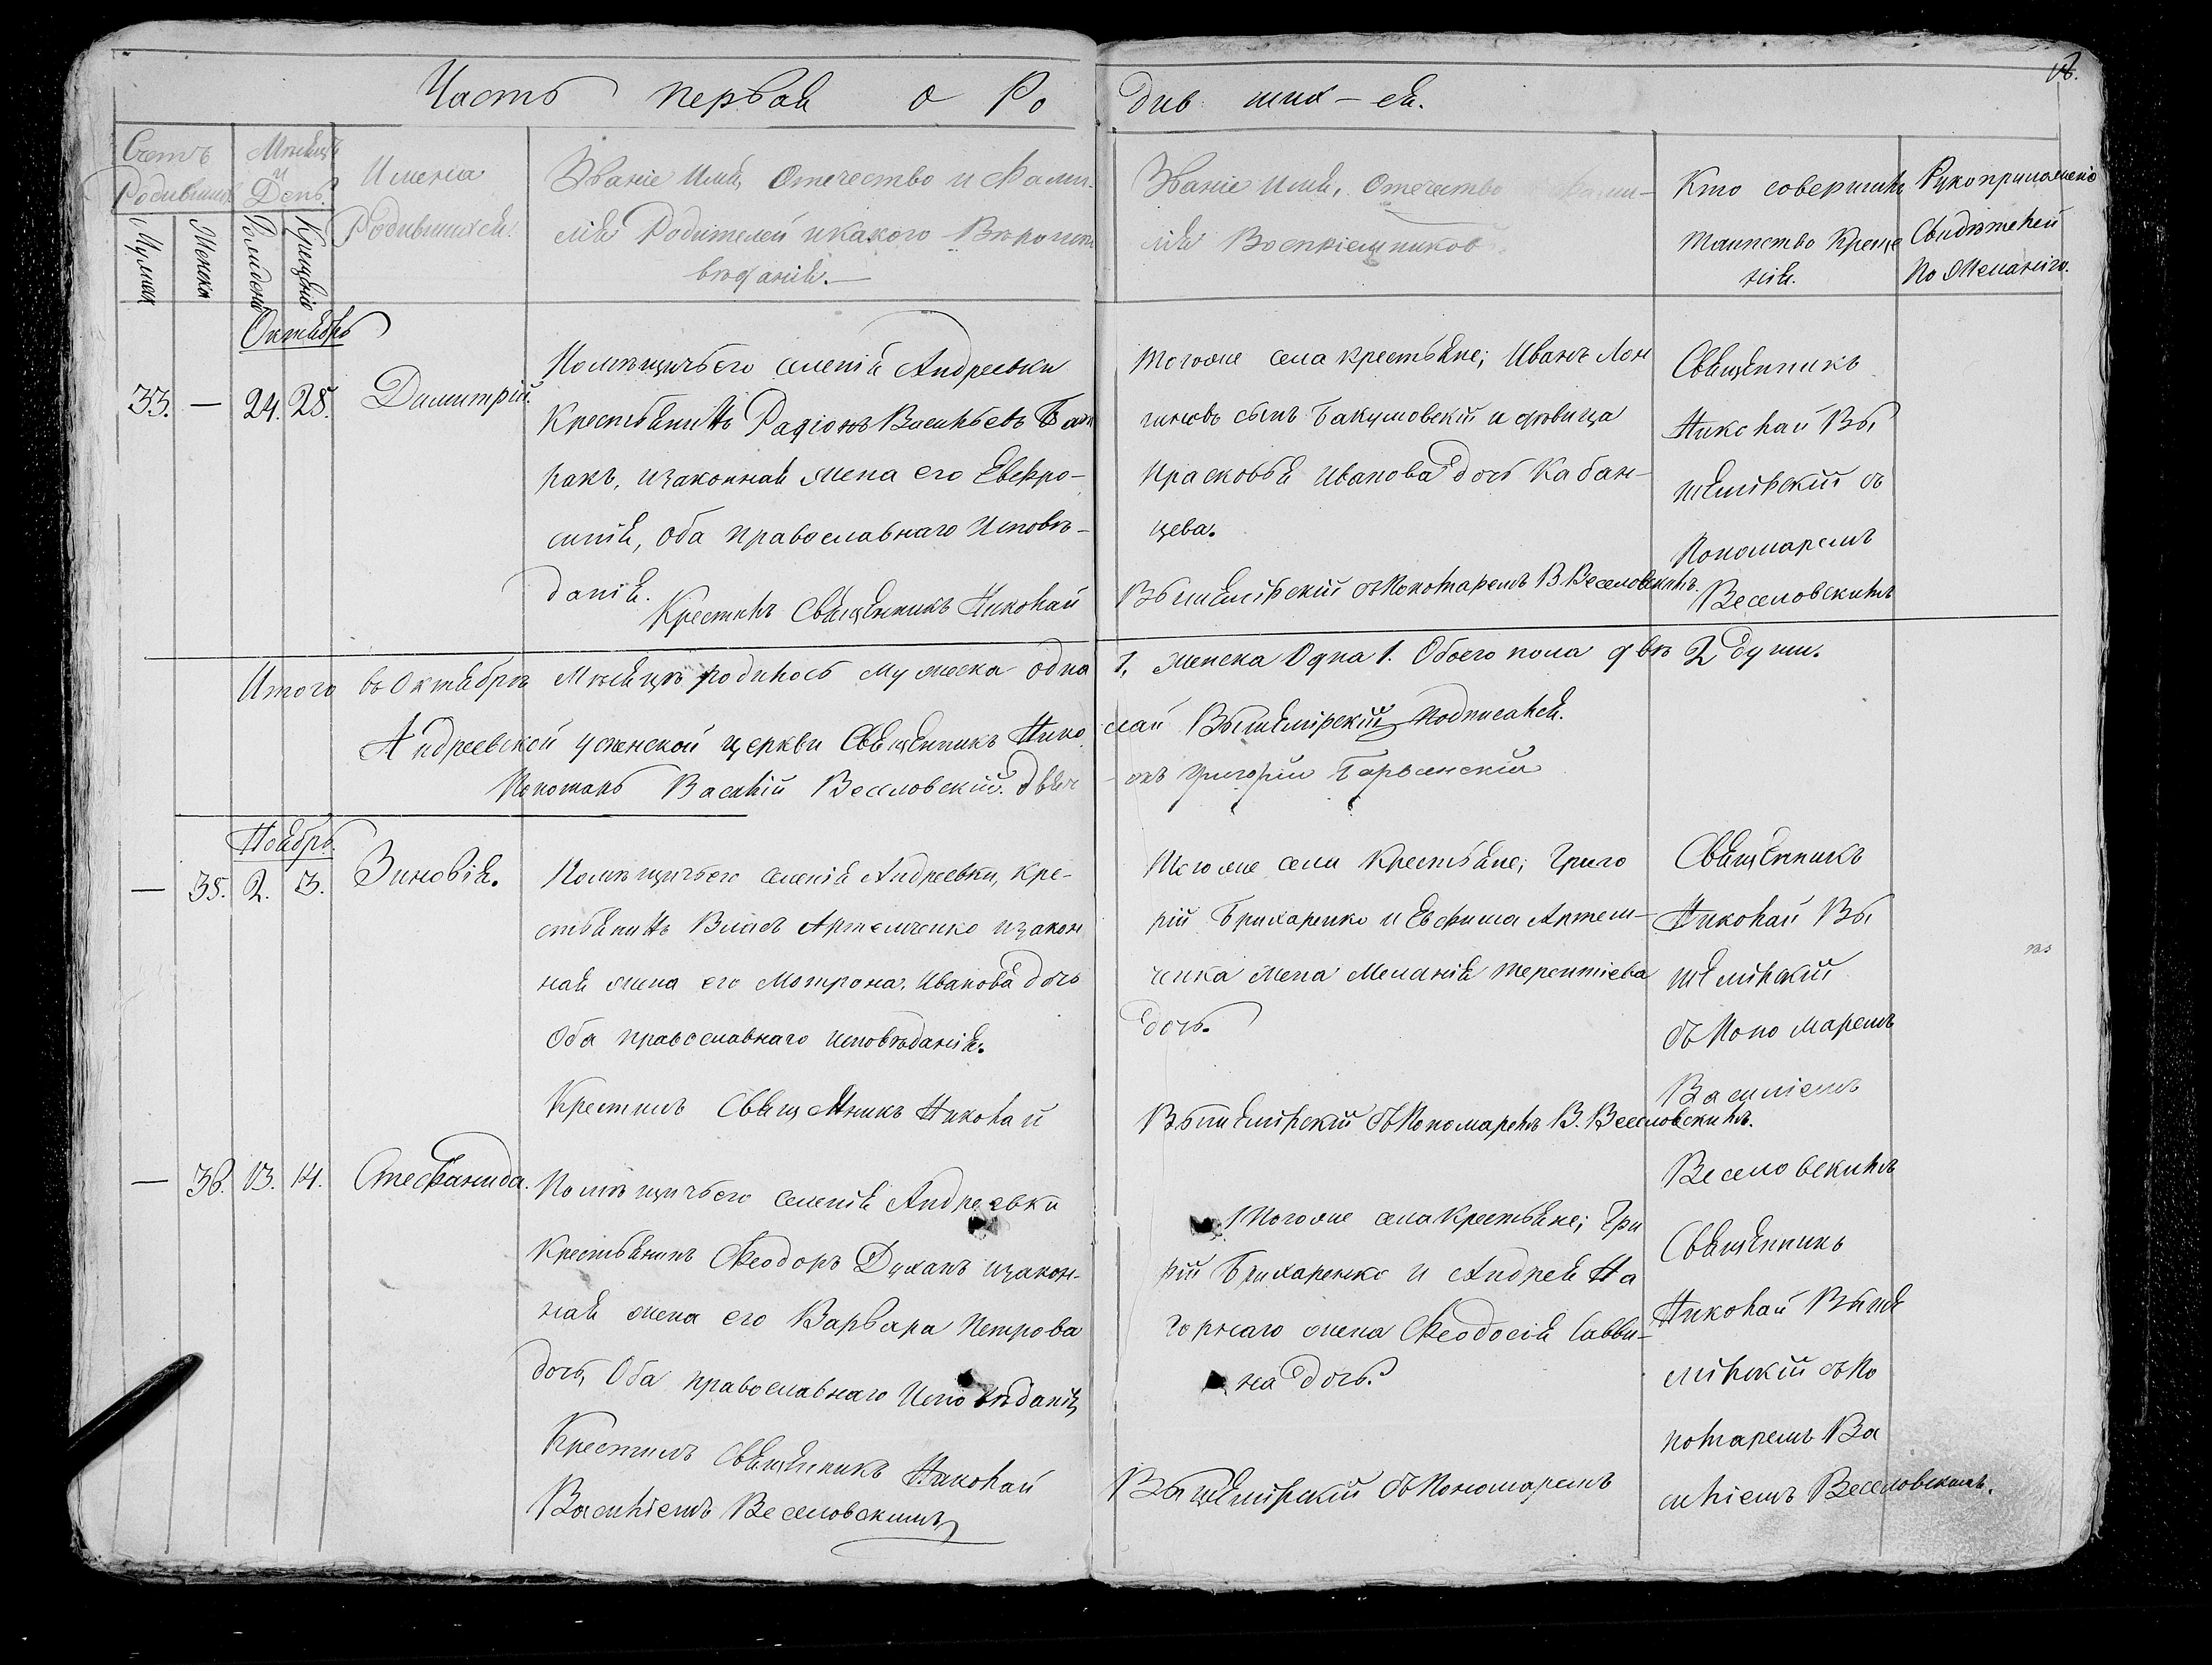 Часть первая о Ро
див шихся.
Счетъ
Родившихся
Мужеска
Женска
Мѣсяцъ
и
День.
Рожденія
Крещенія
Имена
Родившихся.
Званіе Имя, Отечество и Фами-
лія Родителей и какого Вѣроиспо
вѣданія.—
Званіе Имя, Отечество и Фами-
лія Воспріемниковъ
Кто совершилъ
таинство Креще
нія.
Рукоприложеніе
Свидѣтелей
По Желанію.
Октябрь
33. — 24. 28. Димитрій.
Помѣщичьего селенія Андреевки
Крестьянинъ Радіонъ Васильевъ
и законная жена его Евфро-
синія, оба православнаго Исповѣ-
данія.
Крестилъ Священникъ Николай
Тогоже села крестьяне; Иванъ Лон
гиновъ сынъ Бакумовскій и дѣвица
Прасковья Иванова дочь Кабан-
цева.
Вышемірскій съ Пономаремъ В. Веселовскимъ.
Священникъ
Николай Вы
шемірскій съ
Пономаремъ
Веселовскимъ
Итого въ Октябрѣ Мѣсяцѣ родилось Мужеска одна 1, женска Одна 1. Обоего пола двѣ 2 души.
Андреевской успенской церкви Священникъ Николай Вышемірскій Подписался.
Пономарь Василій Веселовскій. Дьячокъ Григорій
Ноябрь.
— 35. 2. 3. Зиновія.
Помѣщичьего селенія Андреевки, кре-
стьянинъ Власъ Артемченко и закон
ная жена его Мотрона Иванова дочь
Оба православнаго исповѣданія.
Крестилъ Священникъ Николай
Тогоже села Крестьяне; Григо
рій Брихаренко и Евфима Артем-
ченка жена Меланія Терентіева
дочь.
Вышемірскій съ Пономаремъ В. Веселовскимъ.
Священникъ
Николай Вы
шемірскій
съ Поно маремъ
Василіемъ
Веселовскимъ
— 36. 13. 14. Стефанида.
Помѣщичьего селенія Андреевки
Крестьянинъ Феодоръ Духанъ и закон-
ная жена его Варвара Петрова
дочь, Оба православнаго Исповѣданія,
Крестилъ Священникъ Николай
Василіемъ Веселовскимъ
Тогоже села Крестьяне; Гри
рій Брихаренко и Андрея На
горнаго жена Феодосія Савви-
на дочь.
Вышемірскій съ Пономаремъ
Священникъ
Николай Выше
мірскій съ По
номаремъ Ва
силіемъ Веселовскимъ.